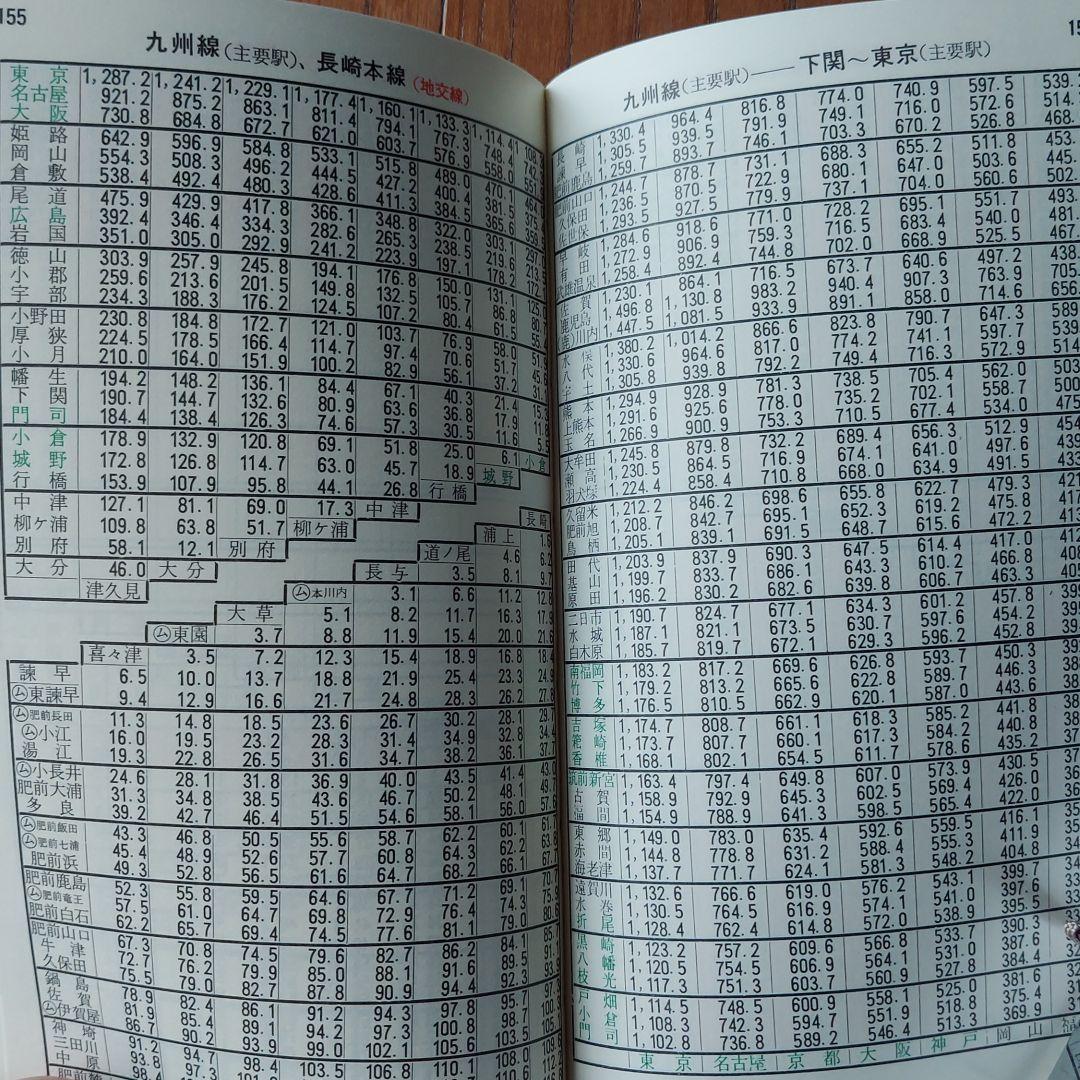 155
九州線(主要駅)、長崎本線(地交線)
東京 1,287.2 1,241.2 1,229.1 1,177.4 1,160.1 1,133.3 1,114.4
名古屋 921.2 875.2 863.1 811.4 794.1 767.3 748.4
大阪 730.8 684.8 672.7 621.0 603.7 576.9 558.0
姫路 642.9 596.9 584.8 533.1 515.8 489.0 470.1
岡山 554.3 508.3 496.2 444.5 427.2 400.4 381.5
倉敷 538.4 492.4 480.3 428.6 411.3 384.5 365.6
尾道 475.9 429.9 417.8 366.1 348.8 322.0 303.1
広島 392.4 346.4 334.3 282.6 265.3 238.5
岩国 351.0 305.0 292.9 241.2 223.9 197.1 178.2
徳山 303.9 257.9 245.8 194.1 176.8 150.0 131.1
小郡 259.6 213.6 201.5 149.8 132.5 105.7 86.8
宇部 234.3 188.3 176.2 124.5 107.2 80.4 61.5
小野田 230.8 184.8 172.7 121.0 103.7 76.9 58.0
厚狭 224.5 178.5 166.4 114.7 97.4 70.6 51.7
小月 210.0 164.0 151.9 100.2 82.9 56.1 37.2
幡生 194.2 148.2 136.1 84.4 67.1 40.3 21.4
下関 190.7 144.7 132.6 80.9 63.6 36.8 17.9
門司 184.4 138.4 126.3 74.6 57.3 30.5 11.6
小倉 178.9 132.9 120.8 69.1 51.8 25.0 6.1 小倉
城野 172.8 126.8 114.7 63.0 45.7 18.9 城野
行橋 153.9 107.9 95.8 44.1 26.8 行橋
中津 127.1 81.1 69.0 17.3 中津
柳ヶ浦 109.8 63.8 51.7 柳ヶ浦 長崎
別府 58.1 12.1 別府 浦上
大分 46.0 大分 道ノ尾 4.6
津久見 長与 3.5 8.1
㋰本川内 3.1 6.6 11.2
大草 5.1 8.2 11.7 16.3
㋰東園 3.7 8.8 11.9 15.4 20.0 21.6
喜々津 3.5 7.2 12.3 15.4 18.9 16.8 18.4
諫早 6.5 10.0 13.7 18.8 21.9 25.4 23.3 24.9
㋰東諫早 9.4 12.9 16.6 21.7 24.8 28.3 26.2 27.8
㋰肥前長田 11.3 14.8 18.5 23.6 26.7 30.2 28.1
㋰小江 16.0 19.5 23.2 28.3 31.4 34.9 32.8
湯江 19.3 22.8 26.5 31.6 34.7 38.2 36.1
㋰小長井 24.6 28.1 31.8 36.9 40.0 43.5 41.4
肥前大浦 31.3 34.8 38.5 43.6 46.7 50.2 48.1
多良 39.2 42.7 46.4 51.5 54.6 58.1 56.0
㋰肥前飯田 43.3 46.8 50.5 55.6 58.7 62.2 60.1
㋰肥前七浦 45.4 48.9 52.6 57.7 60.8 64.3 62.2
肥前浜 49.3 52.8 56.5 61.6 64.7 68.2 66.1
肥前鹿島 52.3 55.8 59.5 64.6 67.7 71.2 69.1
㋰肥前竜王 57.5 61.0 64.7 69.8 72.9 76.4 74.3
肥前白石 62.2 65.7 69.4 74.5 77.6 81.1 79.0
肥前山口 67.3 70.8 74.5 79.6 82.7 86.2 84.1
牛津 72.7 76.2 79.9 85.0 88.1 91.6 89.5
久保田 75.5 79.0 82.7 87.8 90.9 94.4 92.3
鍋島 78.9 82.4 86.1 91.2 94.3 97.8 95.7
佐賀 81.9 85.4 89.1 94.2 97.3 100.8 98.7
㋰伊賀屋 86.7 90.2 93.9 99.0 102.1 105.6 103.5
神埼 91.2 94.7 98.4
三田川 93.8 97.3
中原 98.4
九州線(主要駅)――下関～東京(主要駅)
長崎 1,330.4 964.4 816.8 774.0 740.9 597.5
諫早 1,305.5 939.5 791.9 749.1 716.0 572.6
肥前鹿島 1,259.7 893.7 746.1 703.3 670.2 526.8
肥前山口 1,244.7 878.7 731.1 688.3 655.2 511.8
久保田 870.5 722.9 680.1 647.0 503.6
佐世保 1,293.5 927.5 779.9 737.1 704.0 560.6
早岐 1,284.6 918.6 771.0 728.2 695.1 551.7
有田 1,272.9 906.9 759.3 716.5 683.4 540.0
武雄温泉 1,258.4 892.4 744.8 702.0 668.9 525.5
佐賀 1,230.1 864.1 716.5 673.7 640.6
鹿児島 1,496.8 1,130.8 983.2 940.4 907.3 763.9
川内 1,447.5 1,081.5 933.9 891.1 858.0 714.6
水俣 1,380.2 1,014.2 866.6 823.8 790.7 647.3
八代 1,330.6 964.6 817.0 774.2 741.1 597.7
宇土 1,305.8 939.8 792.2 749.4 716.3 572.9
熊本 1,294.9 928.9 781.3 738.5 705.4 562.0
上熊本 1,291.6 925.6 778.0 735.2 702.1 558.7
玉名 1,266.9 900.9 753.3 710.5 677.4 534.0
大牟田 1,245.8 879.8 732.2 689.4 656.3 512.9
瀬高 1,230.5 864.5 716.9 674.1 641.0
羽犬塚 1,224.4 858.4 710.8 668.0 634.9 491.5
久留米 1,212.2 846.2 698.6 655.8 622.7 479.3
肥前旭 1,208.7 842.7 695.1 652.3 619.2
鳥栖 1,205.1 839.1 691.5 648.7 615.6 472.2
田代 1,203.9 837.9 690.3 647.5 614.4
基山 1,199.7 833.7 686.1 643.3 610.2 466.8
原田 1,196.2 830.2 682.6 639.8 606.7 463.3
二日市 1,190.7 824.7 677.1 634.3 601.2 457.8
水城 1,187.1 821.1 673.5 630.7
白木原 1,185.7 819.7 672.1 629.3 596.2 452.8
南福岡 1,183.2 817.2 669.6 626.8 593.7 450.3
竹下 1,179.2 813.2 665.6 622.8
博多 1,176.5 810.5 662.9 620.1 587.0 443.6
吉塚 1,174.7 808.7 661.1 618.3 585.2 441.8
箱崎 1,173.7 807.7 660.1 617.3 584.2 440.8
香椎 1,168.1 802.1 654.5 611.7 578.6 435.2
筑前新宮 1,163.4 797.4 649.8 607.0 573.9 430.5
古賀 1,158.9 792.9 645.3 602.5 569.4 426.0
福間 1,154.9 788.9 641.3 598.5 565.4 422.0
東郷 1,149.0 783.0 635.4 592.6 559.5 416.1
赤間 1,144.8 778.8 631.2 588.4 555.3 411.9
海老津 1,137.7 771.7 624.1 581.3 548.2 404.8
遠賀川 1,132.6 766.6 619.0 576.2 543.1 399.7
水巻 1,130.5 764.5 616.9 574.1 541.0 397.6
折尾 1,128.4 762.4 614.8 572.0 538.9 395.5
黒崎 1,123.2 757.2 609.6 566.8 533.7 390.3
八幡 1,120.5 754.5 606.9 564.1 531.0 387.6
枝光 1,117.3 751.3 603.7 560.9 527.8 384.4
戸畑 1,114.5 748.5 600.9 558.1 525.0 381.6
小倉 1,108.3 742.3 594.7 551.9 518.8 375.4
門司 1,102.8 736.8 589.2 546.4 513.3 369.9
東京 名古屋 京都 大阪 神戸 岡山